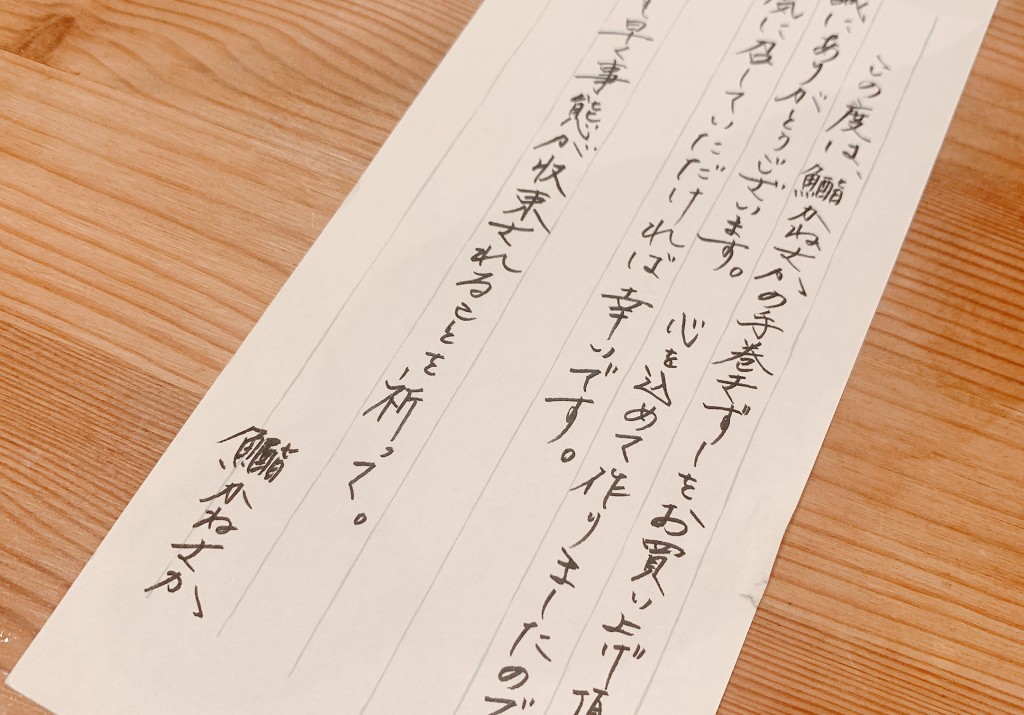 この度は、鮨かねさかの手巻きずしをお買い上げ頂
誠にありがとうございます。 心を込めて作りましたので
気に召していただければ幸いです。
も早く事態が収束されることを祈って。
鮨かねさか